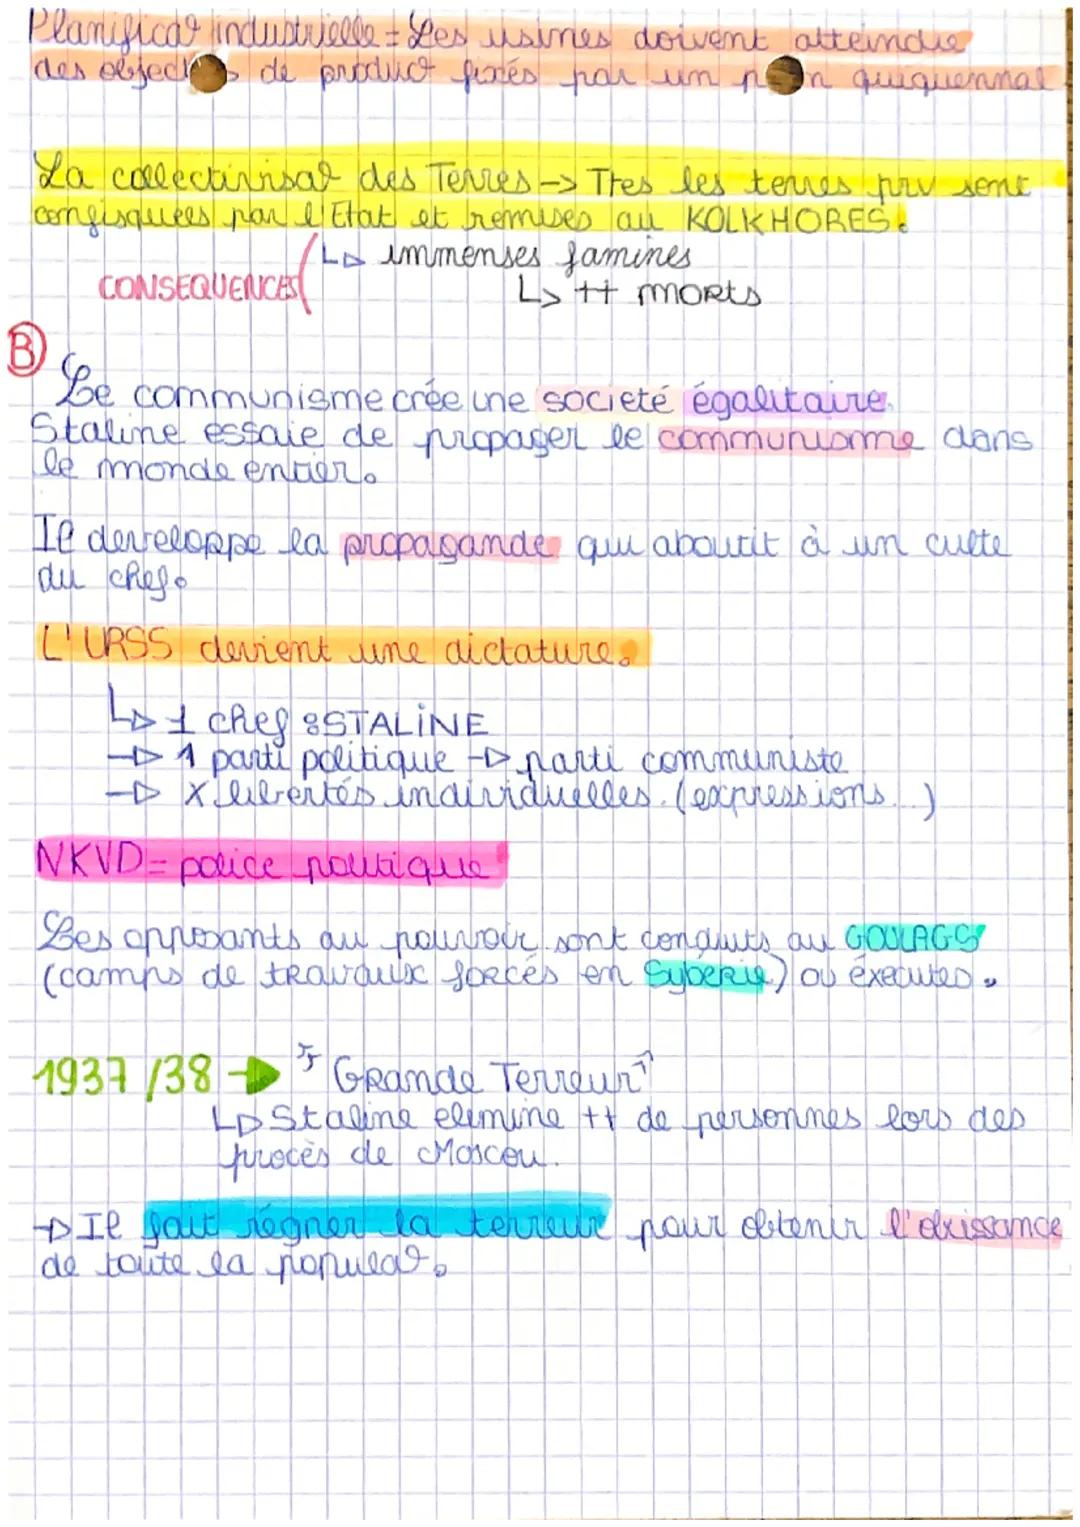 Planificat° industrielle = Les usines doivent atteindre
des object s de product° fixés par un p n quiquennal
La collectivisat° des Terres -> Ttes les terres priv sont
confisquées par l'Etat et remises au KOLKHORES.
CONSEQUENCES ( ↳ immenses famines
↳ ++ morts
B)
Le communisme crée une societé égalitaire.
Staline essaie de propager le communisme dans
le monde entier.
Il developpe la propagande qui aboutit à un culte
du chef.
L'URSS devient une dictature.
↳ 1 chef : STALiNE
-> 1 parti politique -> parti communiste
-> X libertés individuelles. (expressions...)
NKVD = police politique
Les opposants au pouvoir sont conduits au GOULAGS
(camps de travaux forcés en Sybérie) ou éxecutés.
1937 /38 -> "Grande Terreur"
↳ Staline elimine ++ de personnes lors des
procès de Moscou.
-> Il fait régner la terreur pour obtenir l'obéissance
de toute la populat°.